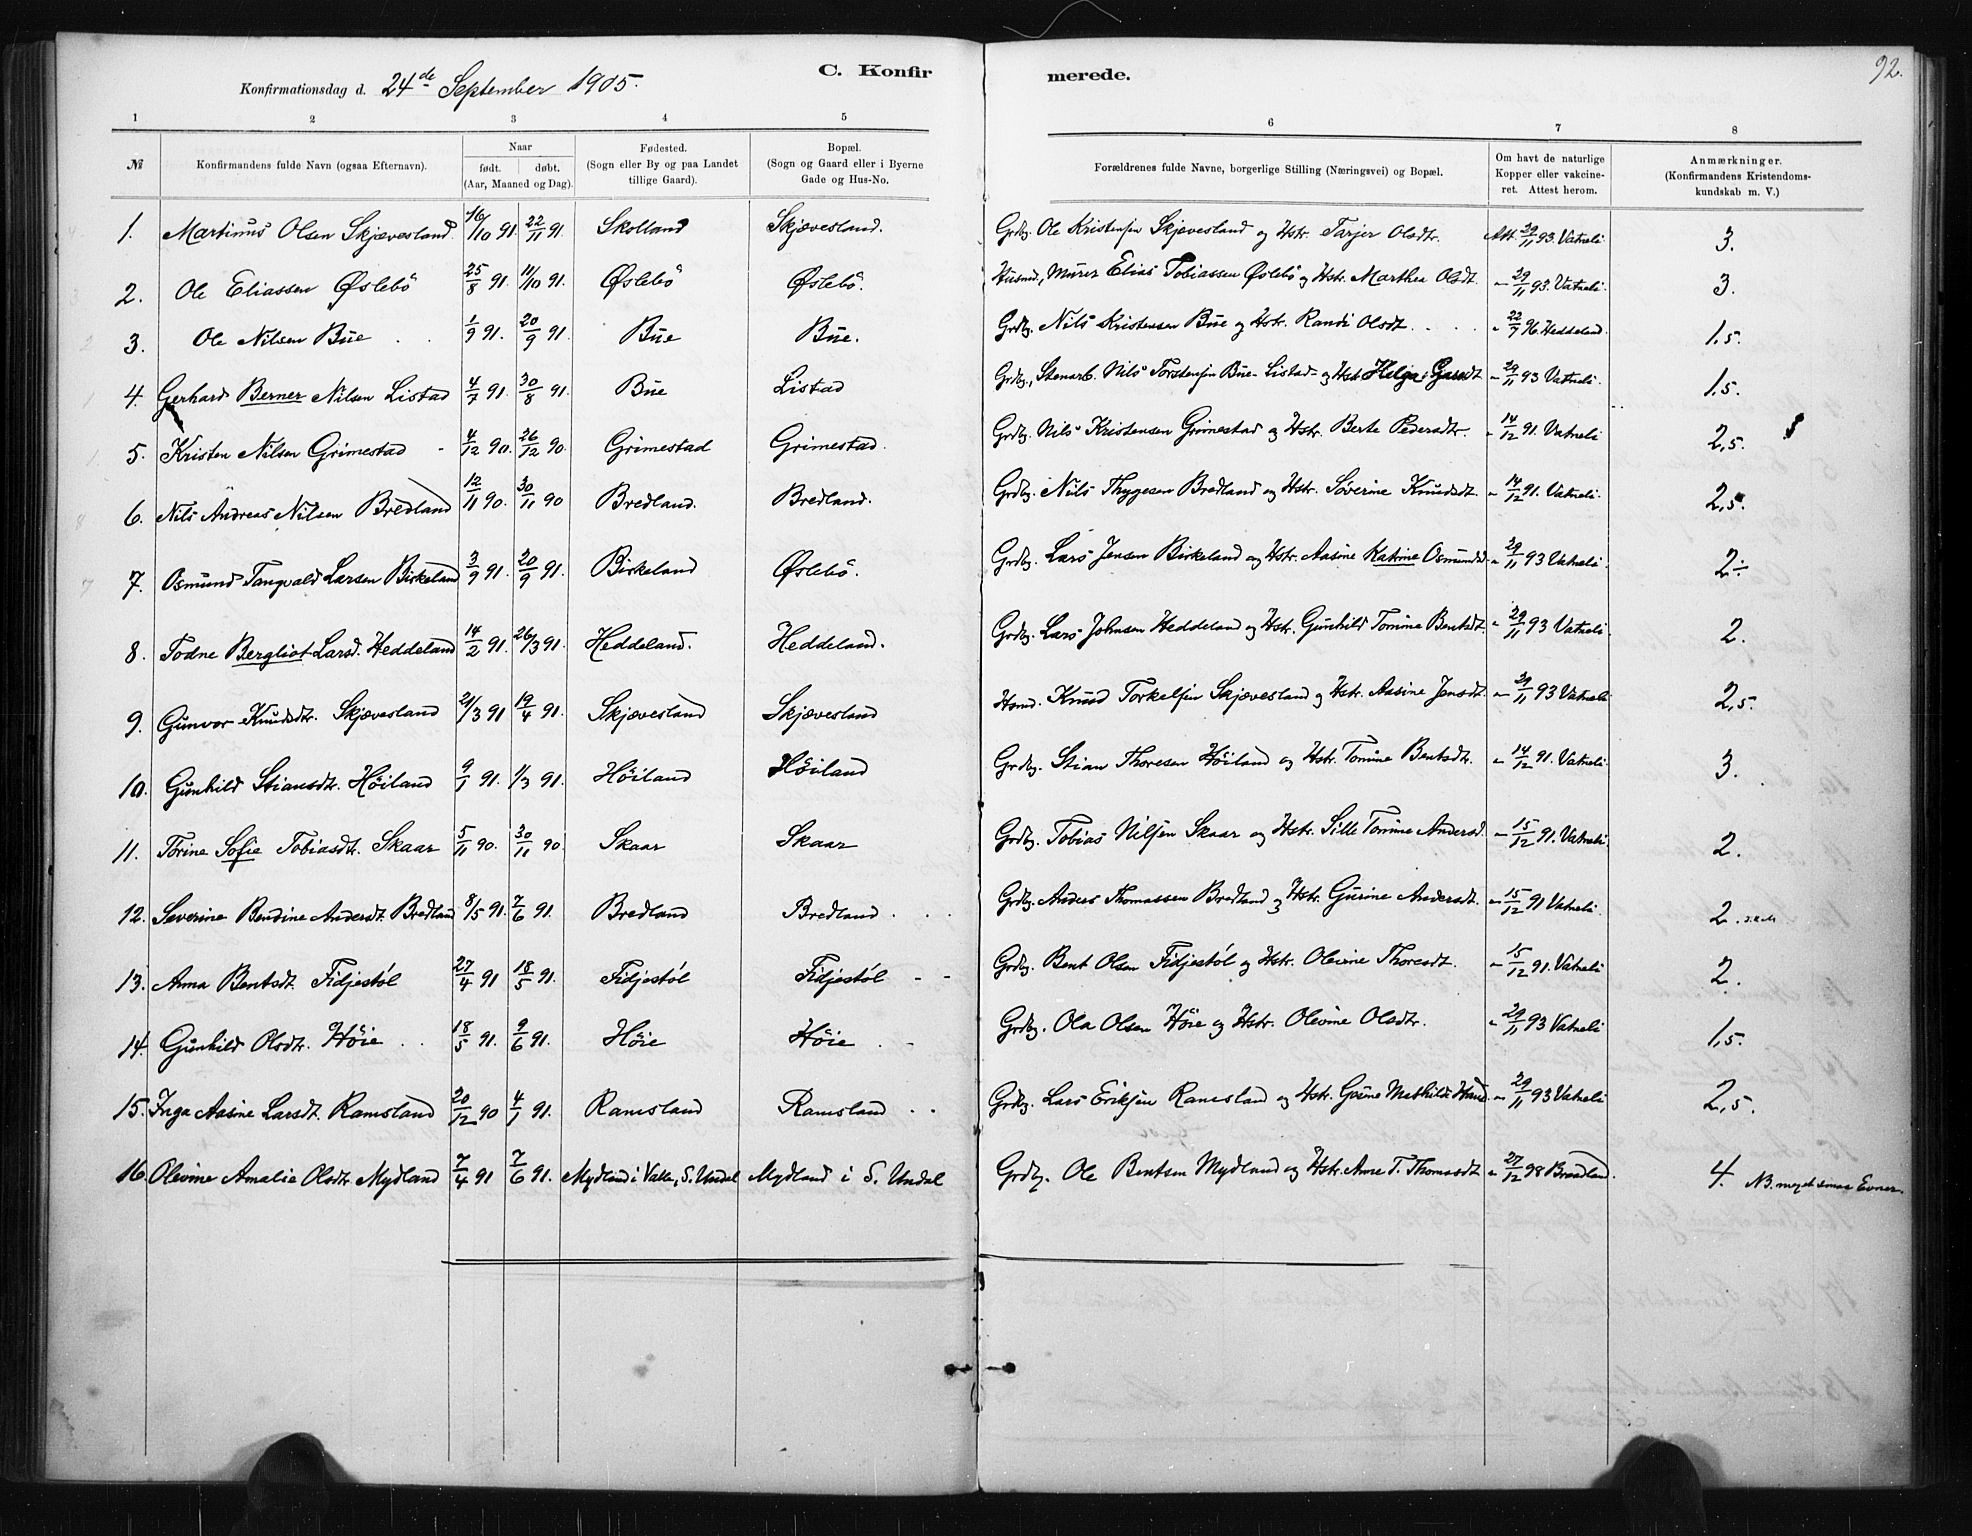 92.
C. Konfirmerede.
Konfirmationsdag d. 24de September 1905.
1 2 3 4 5 6 7 8
№ Konfirmandens fulde Navn (ogsaa Efternavn). Naar født. døbt. (Aar, Maaned og Dag). Fødested. (Sogn eller By og paa Landet tillige Gaard). Bopæl. (Sogn og Gaard eller i Byerne Gade og Hus-No. Forældrenes fulde Navne, borgerlige Stilling (Næringsvei) og Bopæl. Om havt de naturlige Kopper eller vakcineret. Attest herom. Anmærkninger. (Konfirmandens Kristendomskundskab m. V.)
1. Martinus Olsen Skjævesland. 16/10 91. 22/11 91. Skolland Skjævesland. Grdbr. Ole Kristensen Skjævesland og Hstr. Tarjer Olsdtr. Att. 29/11 93. Vatneli 3.
2. Ole Eliassen Øslebö 25/8 91. 11/10 91. Øslebö Øslebö. Husmd, Murer Elias Tobiassen Øslebö og Hstr. Marthea Olsdt. " 29/11 93. Vatneli. 3.
3. Ole Nilsen Bue 1/9 91. 20/9 91. Bue Bue. Grdbr. Nils Kristensen Bue og Hstr. Randi Olsdt. " 22/7 96. Heddeland. 1.5.
4. Gerhard Berner Nilsen Listad 4/7 91. 30/8 91. Bue Listad Grdbr., Stenarb. Nils Torstensen Bue-Listad- og Hstr. Helga " 29/11 93 Vatneli. 1,5.
5. Kristen Nilsen Grimestad 4/12 90. 26/12 90. Grimestad Grimestad. Grdbr. Nils Kristensen Grimestad og Hstr. Berte Pedersdtr. " 14/12 91. Vatneli 2,5.
6. Nils Andreas Nilsen Bredland 12/11 90. 30/11 90 Bredland. Bredland. Grdbr. Nils Thygesen Bredland og Hstr. Söverine Knudsdt. " 14/12 91. Vatneli. 2,5.
7. Osmund Tangvald Larsen Birkeland 3/9 91. 20/9 91. Birkeland Øslebö. Grdbr. Lars Jensen Birkeland og Hstr. Aasine Katrine Osmundsd. " 29/11 93 Vatneli. 2÷
8. Todne Bergliot Larsd. Heddeland 14/2 91. 26/3 91. Heddeland. Heddeland. Grdbr. Lars Johnsen Heddeland og Hstr. Gunhild Tomine Bentsdt. " 29/11 93 Vatneli. 2.
9. Gunvor Knudsdtr. Skjævesland 21/3 91 19/4 91. Skjævesland Skjævesland Husmd. Knud Torkelsen Skjævesland og Hstr. Aasine Jensdt. " 29/11 93 Vatneli 2,5.
10. Gunhild Stiansdtr. Höiland 9/1 91. 1/3 91. Höiland Höiland Grdbr. Stian Thoresen Höiland og Hstr. Tomine Bentsdt. " 14/12 91. Vatneli 3.
11. Torine Sofie Tobiasdtr. Skaar 5/11 90. 30/11 90. Skaar Skaar Grdbr. Tobias Nilsen Skaar og Hstr. Sille Tomine Andersd. " 15/12 91. Vatneli. 2.
12. Severine Bendine Andersdt. Bredland 8/5 91. 7/6 91. Bredland Bredland Grdbr. Anders Thomassen Bredland og Hstr. Gurine Andersdt. " 15/12 91 Vatneli. 2.
13. Anna Bentsdt. Fidjestöl 27/4 91 18/5 91. Fidjestöl Fidjestöl Grdbr. Bent Olsen Fidjestöl og Hstr. Olevine Thoresdt. " 15/12 91. Vatneli 2.
14. Gunhild Olsdtr. Höie 18/5 91. 9/6 91. Höie Höie Grdbr. Ola Olsen Höie og Hstr. Olevine Olsdtr. " 29/11 93 Vatneli 1,5.
15. Inga Aasine Larsdt. Ramsland 20/12 90 4/1 91. Ramsland Ramsland Grdbr. Lars Eriksen Ramsland og Hstr. Gosine Mathilde " 29/11 93 Vatneli 2,5.
16. Olevine Amalie Olsdtr. Mydland 7/4 91 7/6 91. Mydland i Valle, S. Undal Mydland i S. Undal Grdbr. Ole Bentsen Mydland og Hstr. Anne T. Thomasdt. " 27/12 98 Brædland. 4. NB. meget smaa Evner.